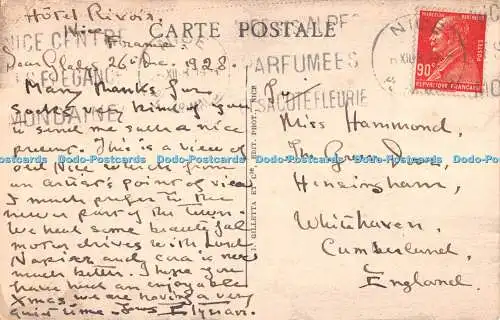 Hôtel Rivoir,
Nice
France
26th Dec. 1928.
Dear Gladys
Many thanks for
very kind of you
to send me such a nice
present. This is a view of
old Nice which from
an artist's point of view
I much prefer to the
newer part of the town.
We had some beautiful
motor drives with Lord
Napier and is now
much better. I hope you
have had an enjoyable
Xmas, we are having a very
quiet time.
CARTE POSTALE
NICE CENTRE
ELEGANCE
MONDAINE
PARFUMEES
SA COTE FLEURIE
J. GILLETTA ET Cie, EDIT. PHOT. NICE
MARCELLIN BERTHELOT
90c
POSTES
REPUBLIQUE FRANCAISE
Miss Hammond,
The Green
Hensingham,
Whitehaven,
Cumberland,
England.
Dodo-Postcards Dodo-Postcards Dodo-Postcards Dodo-Postcards Dodo-Postcards